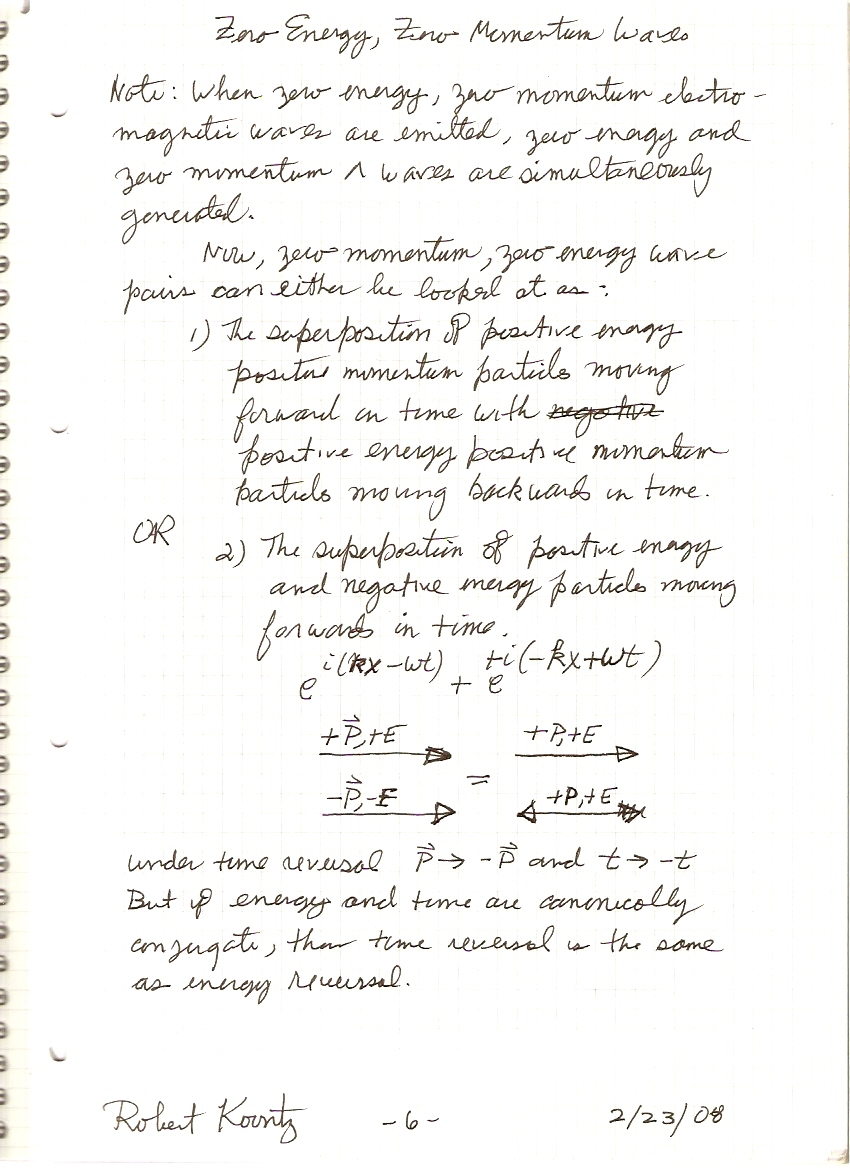 Zero Energy, Zero Momentum Waves
Note: When zero energy, zero momentum electro-
magnetic waves are emitted, zero energy and
zero momentum Λ waves are simultaneously
generated.
Now, zero momentum, zero energy wave
pairs can either be looked at as:
1) The superposition of positive energy
positive momentum particles moving
forward in time with negative
positive energy positive momentum
particles moving backwards in time.
OR
2) The superposition of positive energy
and negative energy particles moving
forwards in time.
e^{i(kx-ωt)} + e^{+i(-kx+ωt)}
+P⃗,+E +P,+E
=
-P⃗,-E +P,+E
under time reversal P⃗ → -P⃗ and t → -t
But if energy and time are canonically
conjugate, then time reversal is the same
as energy reversal.
Robert Koontz -6- 2/23/08